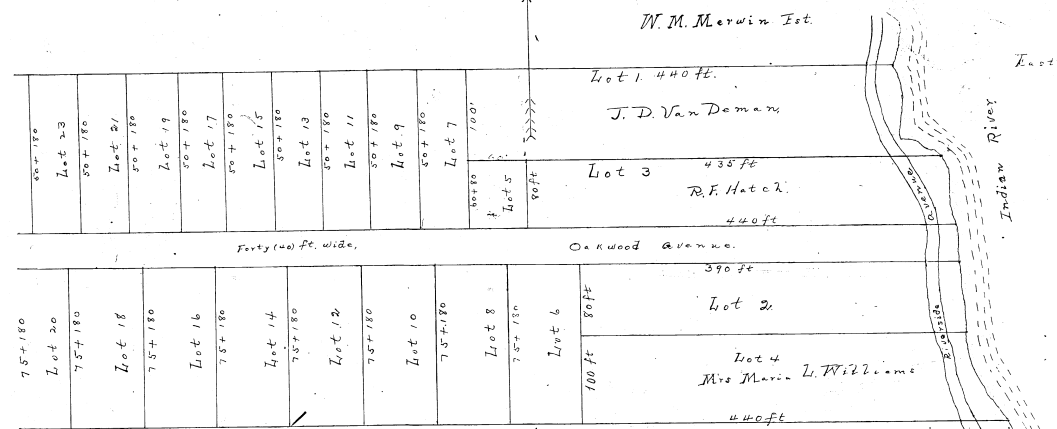 W. M. Merwin Est.
East
Lot 1. 440 ft.
J. D. Van Deman,
50+180 Lot 23
50+180 Lot 21
50+180 Lot 19
50+180 Lot 17
50+180 Lot 15
50+180 Lot 13
50+180 Lot 11
50+180 Lot 9
50+180 Lot 7
100'
60+80 Lot 5
80ft
Lot 3 435 ft
R. F. Hatch.
440 ft
Avenue
Indian River
Forty (40) ft. wide, Oakwood Avenue.
390 ft
Lot 2
75+180 Lot 20
75+180 Lot 18
75+180 Lot 16
75+180 Lot 14
75+180 Lot 12
75+180 Lot 10
75+180 Lot 8
75+180 Lot 6
80ft
100 ft
Lot 4
Mrs Maria L. Williams
440 ft
Riverside